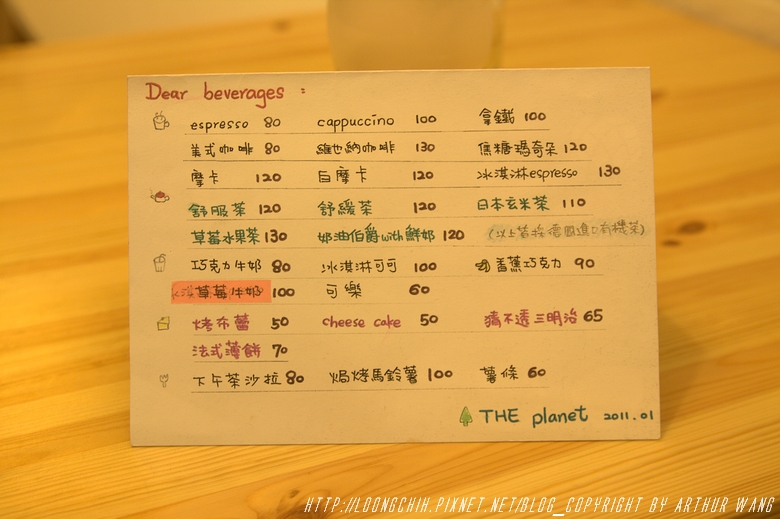 Dear beverages :
espresso 80 cappuccino 100 拿鐵 100
美式咖啡 80 維也納咖啡 130 焦糖瑪奇朵 120
摩卡 120 白摩卡 120 冰淇淋espresso 130
舒服茶 120 舒緩茶 120 日本玄米茶 110
草莓水果茶 130 奶油伯爵with鮮奶 120 (以上皆採德國進口有機茶)
巧克力牛奶 80 冰淇淋可可 100 香蕉巧克力 90
草莓牛奶 100 可樂 60
烤布蕾 50 cheese cake 50 猜不透三明治 65
法式薄餅 70
下午茶沙拉 80 焗烤馬鈴薯 100 薯條 60
THE planet 2011.01
HTTP://LOONGCHIH.PIXNET.NET/BLOG_COPYRIGHT BY ARTHUR WANG